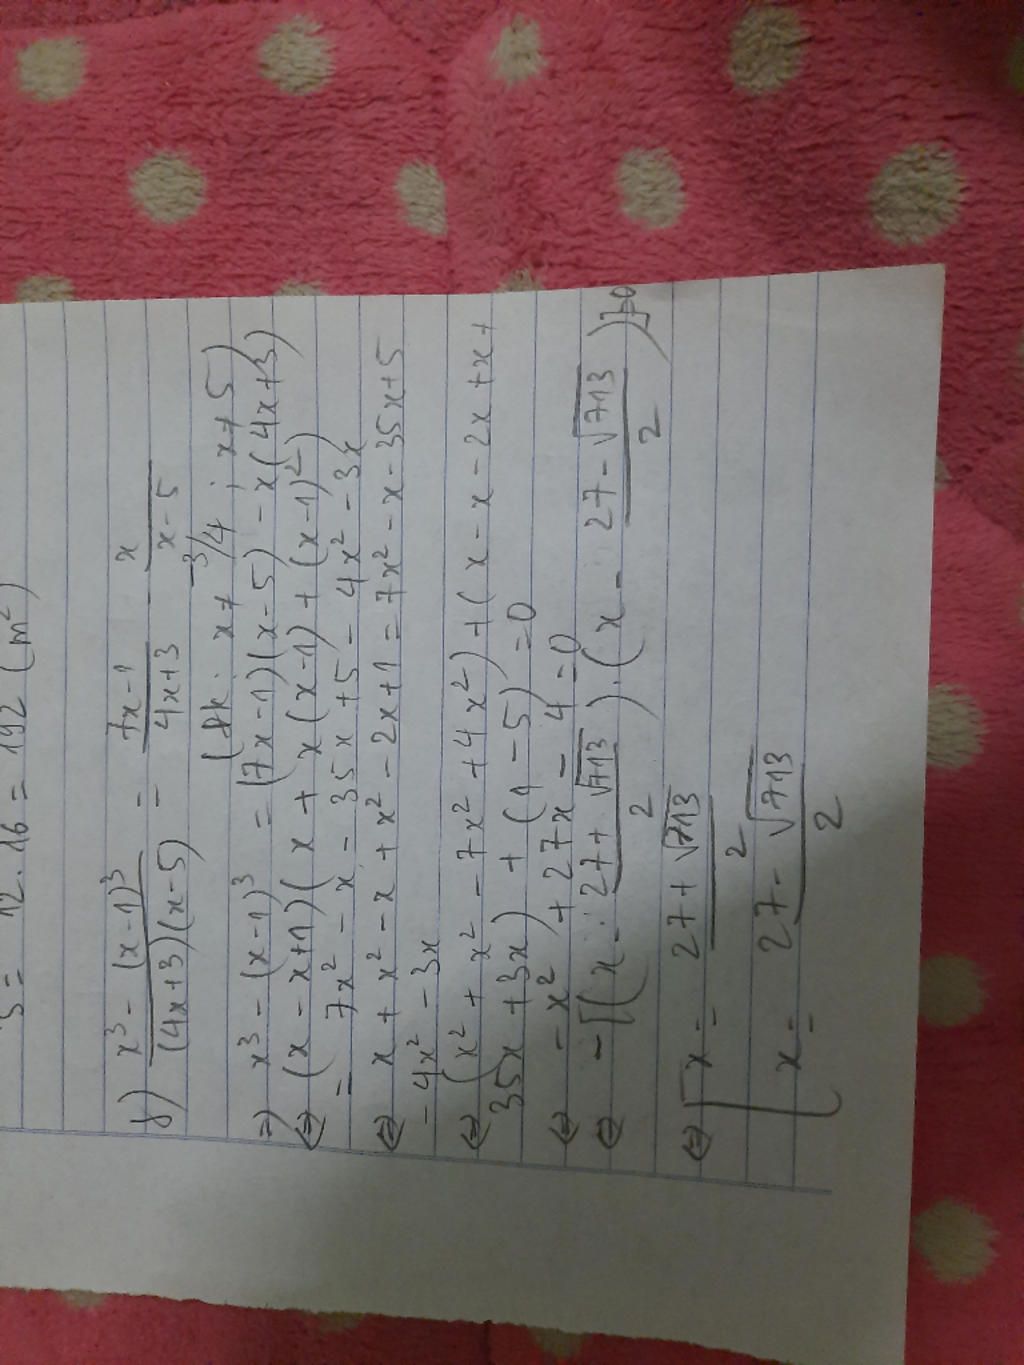 S = 12.16 = 192 (m²)
f) \frac{x³ - (x-1)³}{(4x+3)(x-5)} = \frac{7x-1}{4x+3} - \frac{x}{x-5}
(đk: x ≠ -3/4 ; x ≠ 5)
⇒) x³ - (x-1)³ = (7x-1)(x-5) - x(4x+3)
⇔ (x - x+1)(x + x(x-1) + (x-1)²)
= 7x² - x - 35x + 5 - 4x² - 3x
⇔ x + x² - x + x² - 2x + 1 = 7x² - x - 35x + 5
- 4x² - 3x
⇔ (x² + x² - 7x² + 4x²) + (x - x - 2x + x +
35x + 3x) + (1 - 5) = 0
⇔ - x² + 27x - 4 = 0
⇔ -[(x - \frac{27+√713}{2}).(x - \frac{27-√713}{2})]=0
⇔ [x = \frac{27+√713}{2}
x = \frac{27-√713}{2}